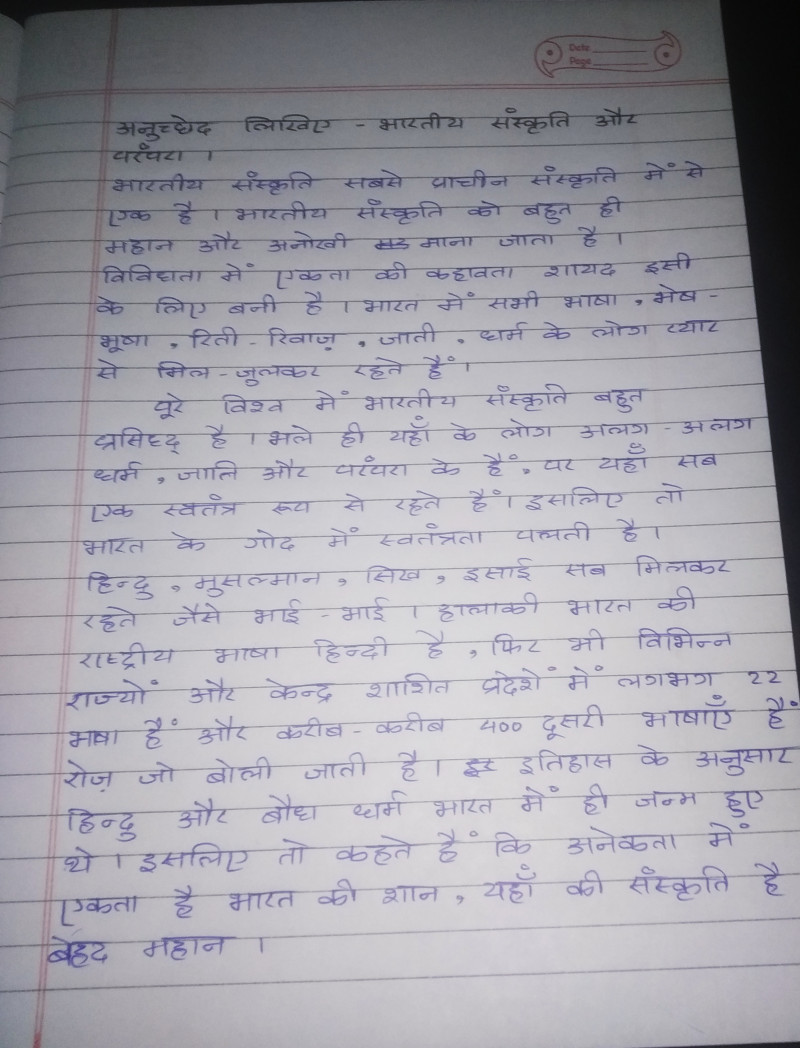 Date
Page
अनुच्छेद लिखिए - भारतीय संस्कृति और
परंपरा ।
भारतीय संस्कृति सबसे प्राचीन संस्कृति में से
एक है । भारतीय संस्कृति को बहुत ही
महान और अनोखी माना जाता है ।
विविधता में एकता की कहावता शायद इसी
के लिए बनी है । भारत में सभी भाषा, भेष-
भूषा, रिती-रिवाज़, जाती, धर्म के लोग प्यार
से मिल-जुलकर रहते हैं ।
पूरे विश्व में भारतीय संस्कृति बहुत
प्रसिध्द् है । भले ही यहाँ के लोग अलग-अलग
धर्म, जाति और परंपरा के हैं, पर यहाँ सब
एक स्वतंत्र रूप से रहते हैं । इसलिए तो
भारत के गोद में स्वतंत्रता पलती है ।
हिन्दु, मुसल्मान, सिख, इसाई सब मिलकर
रहते जैसे भाई-भाई । हालाकी भारत की
राष्ट्रीय भाषा हिन्दी है, फिर भी विभिन्न
राज्यों और केन्द्र शाशित प्रदेशें में लगभग 22
भषा हैं और करीब-करीब 400 दूसरी भाषाएँ हैं
रोज़ जो बोली जाती है । इतिहास के अनुसार
हिन्दु और बौध धर्म भारत में ही जन्म हुए
थे । इसलिए तो कहते हैं कि अनेकता में
एकता है भारत की शान, यहाँ की संस्कृति है
बेहद महान ।